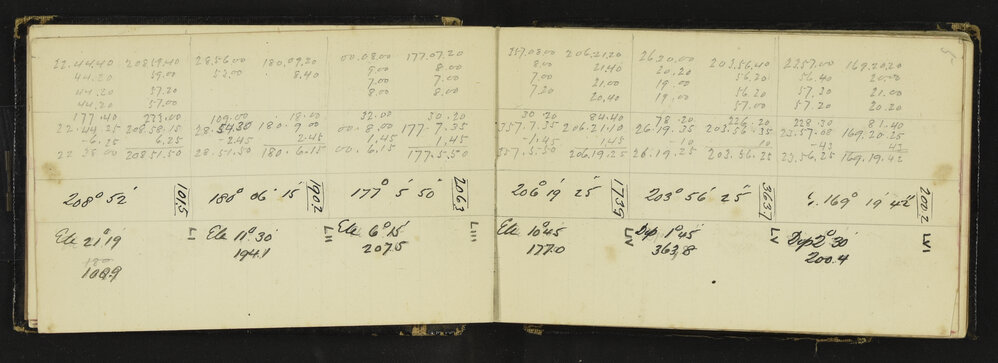 22.44.40 208.59.40 28.56.00 180.09.20 00.08.00 177.07.20
44.20 59.00 52.00 8.40 8.00 8.00
44.20 57.20 7.00 7.00
44.20 57.00 8.00 8.00
177.40 233.00 109.00 18.00 32.00 30.20
22.44.25 208.58.15 28.54.30 180.9.00 00.8.00 177.7.35
-6.25 6.25 -2.45 2.45 1.45 1.45
22.38.00 208.51.50 28.51.50 180.6.15 00.6.15 177.5.50
208° 52' 1015 180° 06' 15" 1907 177° 5' 50" 2063
Ele 21° 19' LI Ele 11° 30' LII Ele 6° 15' LIII
180 194.1 207.5
100.9
357.08.00 206.21.20 26.20.00 203.56.40 2357.00 169.20.20
8.00 21.40 20.20 56.20 56.40 20.00
7.00 21.00 19.00 56.20 57.30 21.00
7.20 20.40 19.00 57.00 57.20 20.20
30.20 84.40 78.20 226.20 228.30 81.40
357.7.35 206.21.10 26.19.35 203.56.35 23.57.08 169.20.25
-1.45 1.45 -10 10 -43 43
357.5.50 206.19.25 26.19.25 203.56.25 23.56.25 169.19.42
206° 19' 25" 1739 203° 56' 25" 3637 169° 19' 42" 2002
Ele 10° 45' LV Dep 1° 45' LV Dep 2° 30' LVI
177.0 363,8 200.4